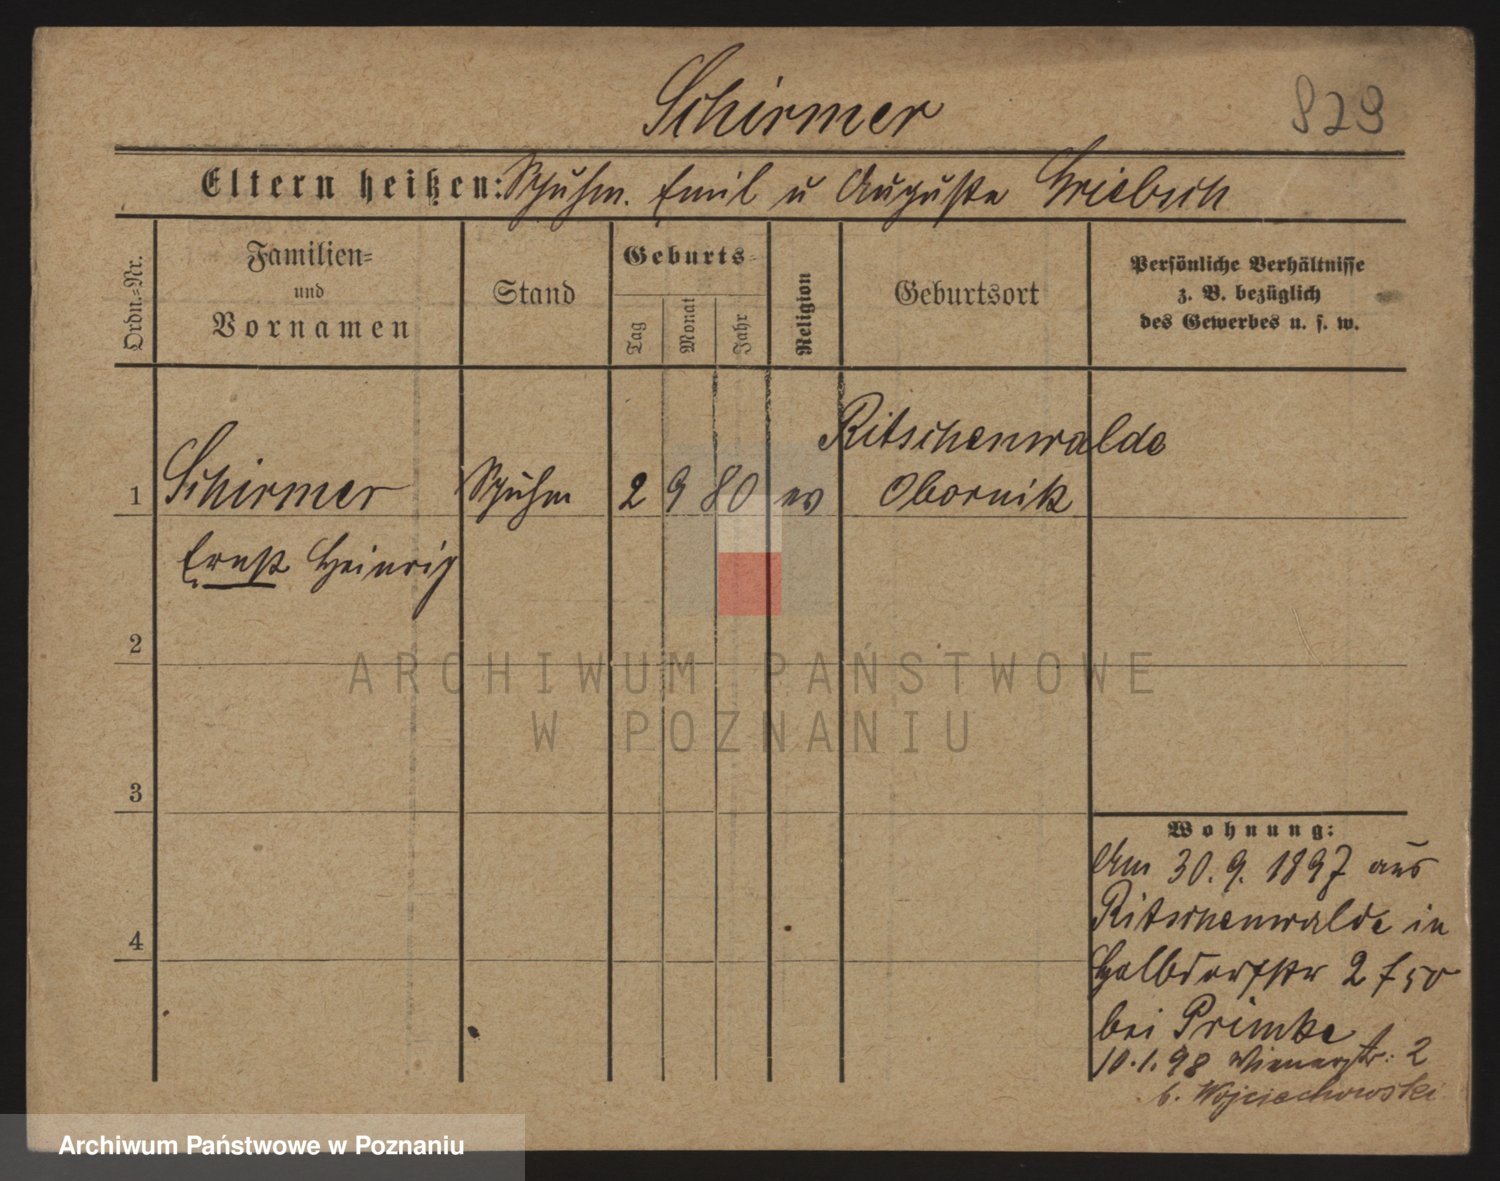 Schirmer
829
Eltern heißen: Schuhm. Emil u Auguste Griebsch
Ordn.-Nr.
Familien-
und
Vornamen
Stand
Geburts-
Tag
Monat
Jahr
Religion
Geburtsort
Persönliche Verhältnisse
z. B. bezüglich
des Gewerbes u. s. w.
Ritschenwalde
1 Schirmer Schuhm 2 9 80 ev Obornik
Ernst Heinrich
2
ARCHIWUM PAŃSTWOWE
W POZNANIU
3
Wohnung:
Am 30. 9. 1897 aus
Ritschenwalde in
4
Halbdorfstr 2
bei Primke
10.1.98 Wienerstr: 2
b. Wojciechowski
Archiwum Państwowe w Poznaniu